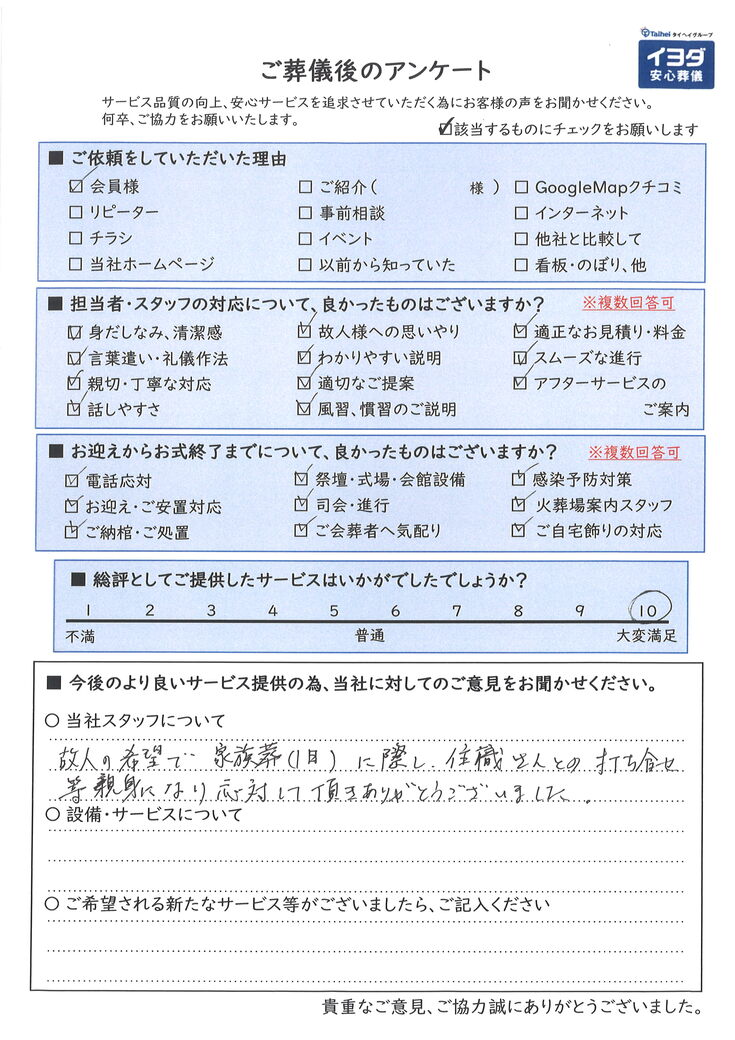 Taihei タイヘイグループ
イヨダ
安心葬儀
ご葬儀後のアンケート
サービス品質の向上、安心サービスを追求させていただく為にお客様の声をお聞かせください。
何卒、ご協力をお願いいたします。
☑該当するものにチェックをお願いします
■ ご依頼をしていただいた理由
☑ 会員様 □ ご紹介( 様 ) □ GoogleMapクチコミ
□ リピーター □ 事前相談 □ インターネット
□ チラシ □ イベント □ 他社と比較して
□ 当社ホームページ □ 以前から知っていた □ 看板・のぼり、他
■ 担当者・スタッフの対応について、良かったものはございますか? ※複数回答可
☑ 身だしなみ、清潔感 ☑ 故人様への思いやり ☑ 適正なお見積り・料金
☑ 言葉遣い・礼儀作法 ☑ わかりやすい説明 ☑ スムーズな進行
☑ 親切・丁寧な対応 ☑ 適切なご提案 ☑ アフターサービスの
☑ 話しやすさ ☑ 風習、慣習のご説明 ご案内
■ お迎えからお式終了までについて、良かったものはございますか? ※複数回答可
☑ 電話応対 ☑ 祭壇・式場・会館設備 ☑ 感染予防対策
☑ お迎え・ご安置対応 ☑ 司会・進行 ☑ 火葬場案内スタッフ
☑ ご納棺・ご処置 ☑ ご会葬者へ気配り ☑ ご自宅飾りの対応
■ 総評としてご提供したサービスはいかがでしたでしょうか?
1 2 3 4 5 6 7 8 9 10
不満 普通 大変満足
■ 今後のより良いサービス提供の為、当社に対してのご意見をお聞かせください。
○ 当社スタッフについて
故人の希望で 家族葬(1日)に際し、住職さんとの打ち合せ
等親身になり応対して頂きありがとうございました。
○ 設備・サービスについて
○ ご希望される新たなサービス等がございましたら、ご記入ください
貴重なご意見、ご協力誠にありがとうございました。